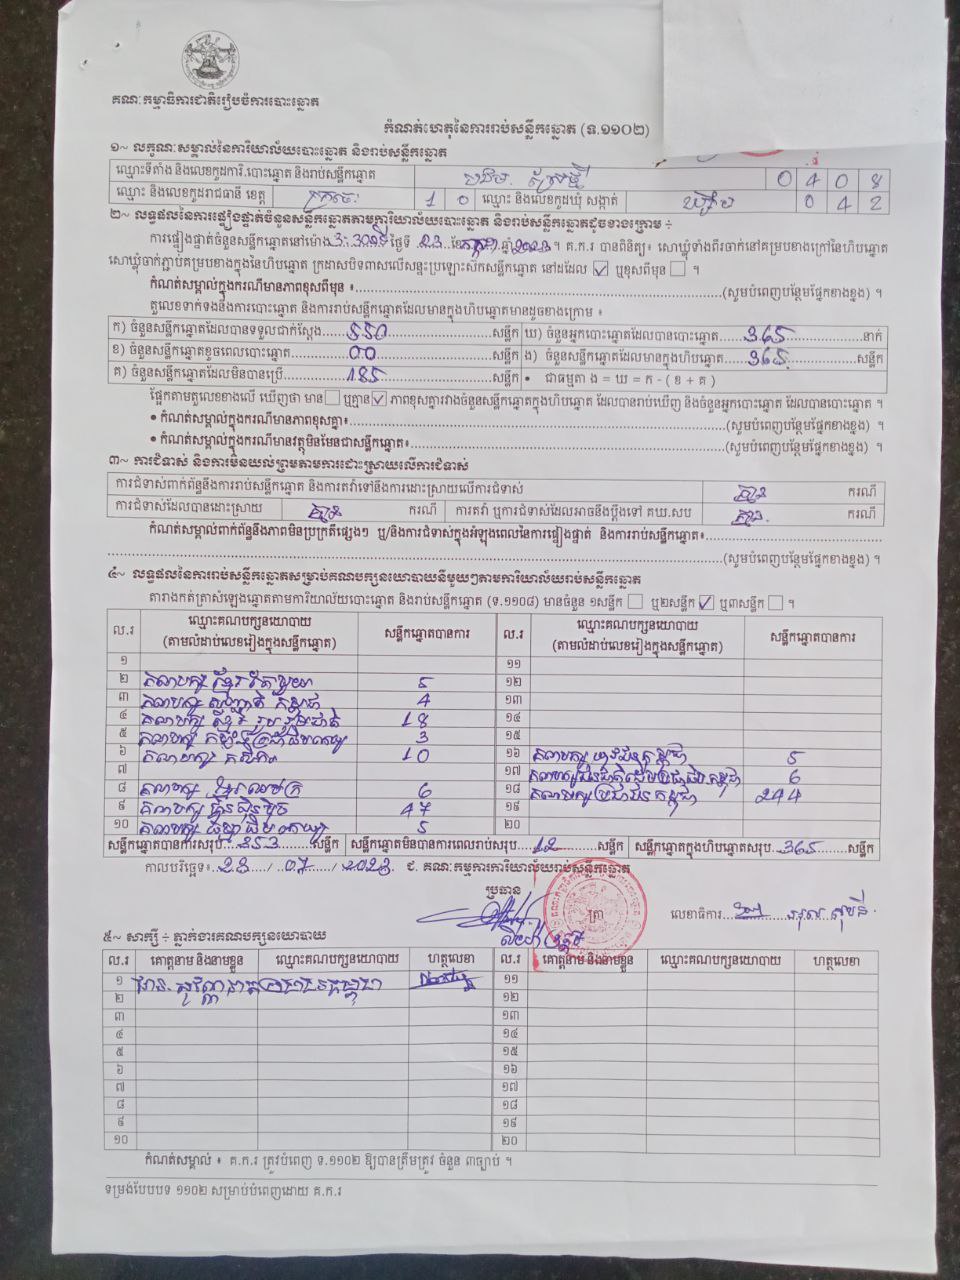 គណៈកម្មាធិការជាតិរៀបចំការបោះឆ្នោត
កំណត់ហេតុនៃការរាប់សន្លឹកឆ្នោត (ទ.១១០២)
១~ លក្ខណៈសម្គាល់នៃការិយាល័យបោះឆ្នោត និងរាប់សន្លឹកឆ្នោត
ឈ្មោះទីតាំង និងលេខកូដការិ.បោះឆ្នោត និងរាប់សន្លឹកឆ្នោត 0 4 0 8
ឈ្មោះ និងលេខកូដរាជធានី ខេត្ត ក្រចេះ 1 0 ឈ្មោះ និងលេខកូដឃុំ សង្កាត់ 0 4 2
២~ លទ្ធផលនៃការផ្ទៀងផ្ទាត់ចំនួនសន្លឹកឆ្នោតតាមការិយាល័យបោះឆ្នោត និងរាប់សន្លឹកឆ្នោតដូចខាងក្រោម ÷
ការផ្ទៀងផ្ទាត់ចំនួនសន្លឹកឆ្នោតនៅម៉ោង 3:30 ថ្ងៃទី 23 ខែ កក្កដា ឆ្នាំ 2023 ។ គ.ក.រ បានពិនិត្យ៖ សោឃ្លុំទាំងពីរចាក់នៅគម្របខាងក្រៅនៃហិបឆ្នោត
សោឃ្លុំចាក់ភ្ជាប់គម្របខាងក្នុងនៃហិបឆ្នោត ក្រដាសបិទពាសលើសន្ទះប្រឡោះស៊កសន្លឹកឆ្នោត នៅដដែល ☑ ឬខុសពីមុន ☐ ។
កំណត់សម្គាល់ក្នុងករណីមានភាពខុសពីមុន ៖ (សូមបំពេញបន្ថែមផ្នែកខាងខ្នង) ។
តួលេខទាក់ទងនឹងការបោះឆ្នោត និងការរាប់សន្លឹកឆ្នោតដែលមានក្នុងហិបឆ្នោតមានដូចខាងក្រោម ៖
ក) ចំនួនសន្លឹកឆ្នោតដែលបានទទួលជាក់ស្តែង 550 សន្លឹក ឃ) ចំនួនអ្នកបោះឆ្នោតដែលបានបោះឆ្នោត 365 នាក់
ខ) ចំនួនសន្លឹកឆ្នោតខូចពេលបោះឆ្នោត 00 សន្លឹក ង) ចំនួនសន្លឹកឆ្នោតដែលមានក្នុងហិបឆ្នោត 365 សន្លឹក
គ) ចំនួនសន្លឹកឆ្នោតដែលមិនបានប្រើ 185 សន្លឹក • ជាធម្មតា ង = ឃ = ក - ( ខ + គ )
ផ្អែកតាមតួលេខខាងលើ ឃើញថា មាន ☐ ឬគ្មាន ☑ ភាពខុសគ្នារវាងចំនួនសន្លឹកឆ្នោតក្នុងហិបឆ្នោត ដែលបានរាប់ឃើញ និងចំនួនអ្នកបោះឆ្នោត ដែលបានបោះឆ្នោត ។
• កំណត់សម្គាល់ក្នុងករណីមានភាពខុសគ្នា៖ (សូមបំពេញបន្ថែមផ្នែកខាងខ្នង) ។
• កំណត់សម្គាល់ក្នុងករណីមានវត្ថុមិនមែនជាសន្លឹកឆ្នោត៖ (សូមបំពេញបន្ថែមផ្នែកខាងខ្នង) ។
៣~ ការជំទាស់ និងការមិនយល់ព្រមតាមការដោះស្រាយលើការជំទាស់
ការជំទាស់ពាក់ព័ន្ធនឹងការរាប់សន្លឹកឆ្នោត និងការតវ៉ាទៅនឹងការដោះស្រាយលើការជំទាស់ គ្មាន ករណី
ការជំទាស់ដែលបានដោះស្រាយ គ្មាន ករណី ការតវ៉ា ឬការជំទាស់ដែលអាចនឹងប្តឹងទៅ គឃ.សប គ្មាន ករណី
កំណត់សម្គាល់ពាក់ព័ន្ធនឹងភាពមិនប្រក្រតីផ្សេងៗ ឬ/និងការជំទាស់ក្នុងអំឡុងពេលនៃការផ្ទៀងផ្ទាត់ និងការរាប់សន្លឹកឆ្នោត៖
(សូមបំពេញបន្ថែមផ្នែកខាងខ្នង) ។
៤~ លទ្ធផលនៃការរាប់សន្លឹកឆ្នោតសម្រាប់គណបក្សនយោបាយនីមួយៗតាមការិយាល័យរាប់សន្លឹកឆ្នោត
តារាងកត់ត្រាសំឡេងឆ្នោតតាមការិយាល័យបោះឆ្នោត និងរាប់សន្លឹកឆ្នោត (ទ.១១០៨) មានចំនួន ១សន្លឹក ☐ ឬ២សន្លឹក ☑ ឬ៣សន្លឹក ☐ ។
ល.រ ឈ្មោះគណបក្សនយោបាយ (តាមលំដាប់លេខរៀងក្នុងសន្លឹកឆ្នោត) សន្លឹកឆ្នោតបានការ ល.រ ឈ្មោះគណបក្សនយោបាយ (តាមលំដាប់លេខរៀងក្នុងសន្លឹកឆ្នោត) សន្លឹកឆ្នោតបានការ
១ ១១
២ គណបក្ស ខ្មែរតែមួយ 5 ១២
៣ គណបក្ស 4 ១៣
៤ គណបក្ស ខ្មែរ រួបរួមជាតិ 18 ១៤
៥ គណបក្ស 3 ១៥
៦ គណបក្ស កសិករ 10 ១៦ គណបក្ស 5
៧ ១៧ គណបក្ស 6
៨ គណបក្ស 6 ១៨ គណបក្ស ប្រជាជន កម្ពុជា 244
៩ គណបក្ស ហ្វ៊ុនស៊ិនប៉ិច 47 ១៩
១០ គណបក្ស 5 ២០
សន្លឹកឆ្នោតបានការសរុប 353 សន្លឹក សន្លឹកឆ្នោតមិនបានការពេលរាប់សរុប 12 សន្លឹក សន្លឹកឆ្នោតក្នុងហិបឆ្នោតសរុប 365 សន្លឹក
កាលបរិច្ឆេទ៖ 23 / 07 / 2023 ជ. គណៈកម្មការការិយាល័យរាប់សន្លឹកឆ្នោត
ប្រធាន
ត្រា
លេខាធិការ
៥~ សាក្សី ÷ ភ្នាក់ងារគណបក្សនយោបាយ
ល.រ គោត្តនាម និងនាមខ្លួន ឈ្មោះគណបក្សនយោបាយ ហត្ថលេខា ល.រ គោត្តនាម និងនាមខ្លួន ឈ្មោះគណបក្សនយោបាយ ហត្ថលេខា
១ ១១
២ ១២
៣ ១៣
៤ ១៤
៥ ១៥
៦ ១៦
៧ ១៧
៨ ១៨
៩ ១៩
១០ ២០
កំណត់សម្គាល់ ៖ គ.ក.រ ត្រូវបំពេញ ទ.១១០២ ឱ្យបានត្រឹមត្រូវ ចំនួន ៣ច្បាប់ ។
ទម្រង់បែបបទ ១១០២ សម្រាប់បំពេញដោយ គ.ក.រ